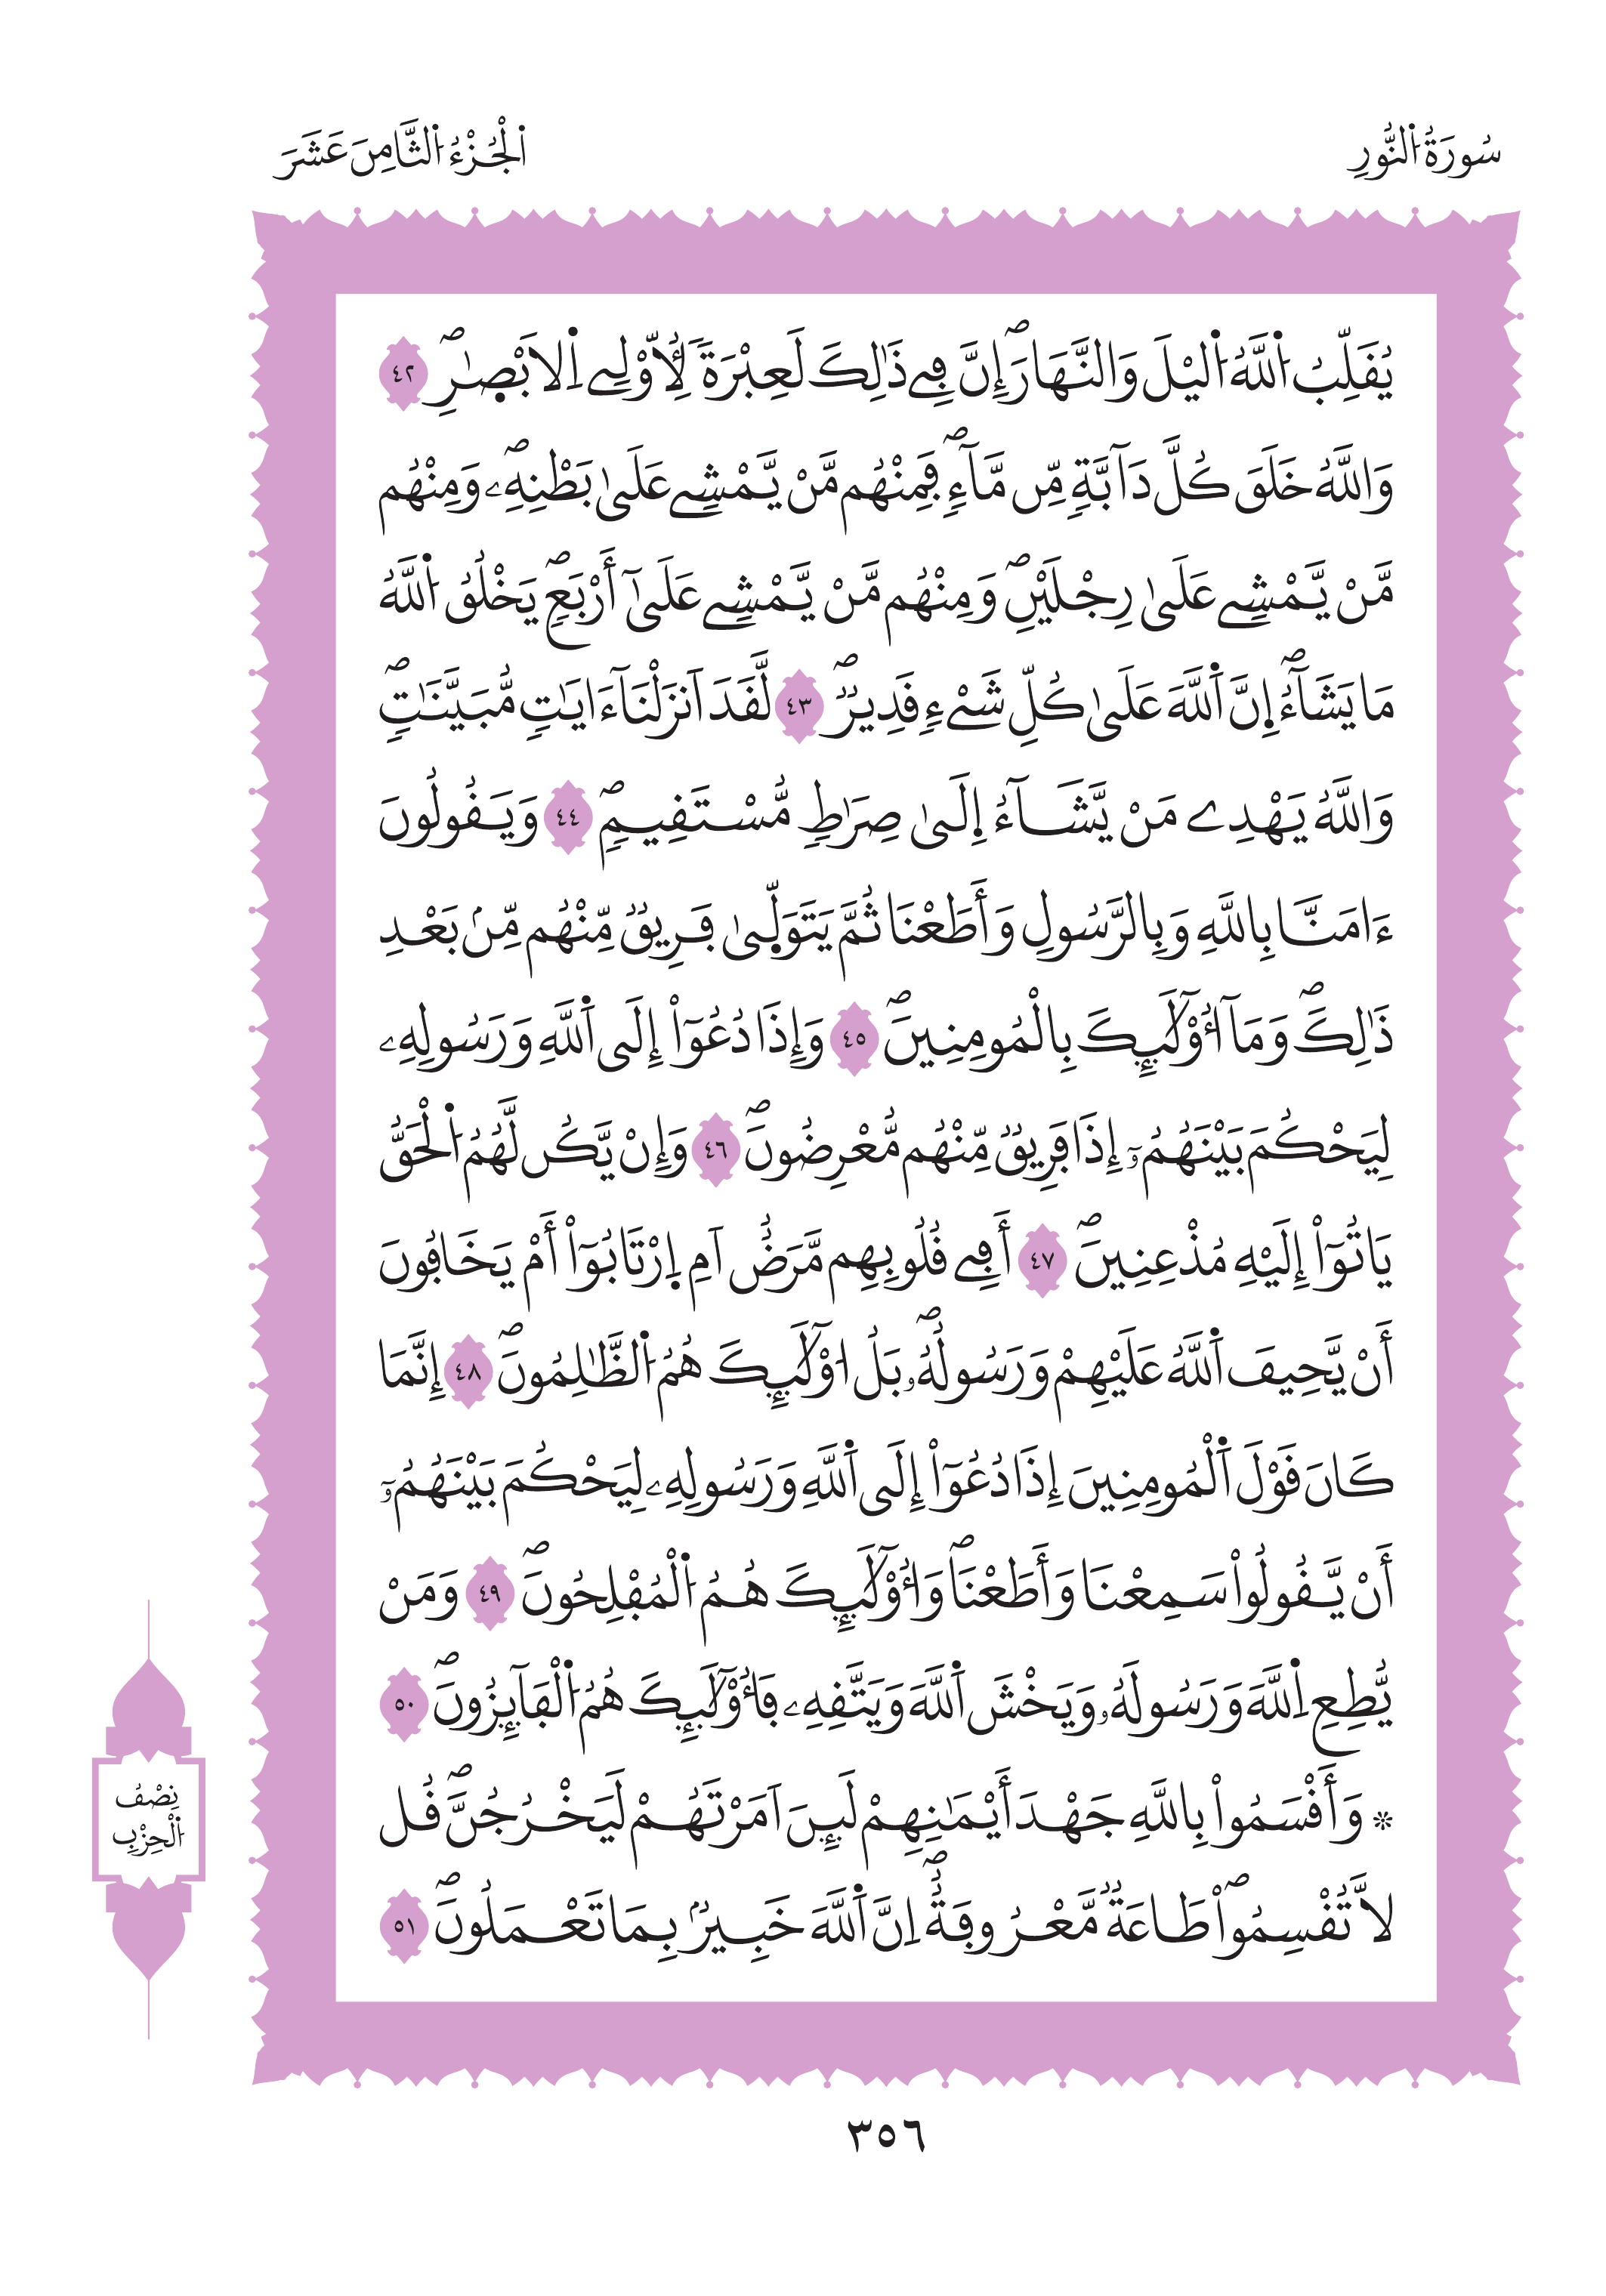 سُورَةُ اُ۬لنُّورِ
اَ۬لْجُزْءُ اُ۬لثَّامِنَ عَشَرَ
يُقَلِّبُ اُ۬للَّهُ اُ۬ليْلَ وَالنَّهَارَۖ إِنَّ فِے ذَٰلِكَ لَعِبْرَةٗ لِّأُوْلِے اِ۬لَابْصٰ۪رِۖ ٤٢
وَاللَّهُ خَلَقَ كُلَّ دَآبَّةٖ مِّن مَّآءٖۖ فَمِنْهُم مَّنْ يَّمْشِے عَلَىٰ بَطْنِهِۦۖ وَمِنْهُم
مَّنْ يَّمْشِے عَلَىٰ رِجْلَيْنِۖ وَمِنْهُم مَّنْ يَّمْشِے عَلَىٰٓ أَرْبَعٖۖ يَخْلُقُ اُ۬للَّهُ
مَا يَشَآءُۖ اِ۪نَّ اَ۬للَّهَ عَلَىٰ كُلِّ شَےْءٖ قَدِيرٞۖ ٤٣ لَّقَدَ اَنزَلْنَآ ءَايَٰتٖ مُّبَيَّنَٰتٖۖ
وَاللَّهُ يَهْدِے مَنْ يَّشَآءُ اِ۪لَىٰ صِرَٰطٖ مُّسْتَقِيمٖۖ ٤٤ وَيَقُولُونَ
ءَامَنَّا بِاللَّهِ وَبِالرَّسُولِ وَأَطَعْنَا ثُمَّ يَتَوَلّ۪ىٰ فَرِيقٞ مِّنْهُم مِّنۢ بَعْدِ
ذَٰلِكَۖ وَمَآ أُوْلَٰٓئِكَ بِالْمُومِنِينَۖ ٤٥ وَإِذَا دُعُوٓاْ إِلَى اَ۬للَّهِ وَرَسُولِهِۦ
لِيَحْكُمَ بَيْنَهُمُۥٓ إِذَا فَرِيقٞ مِّنْهُم مُّعْرِضُونَۖ ٤٦ وَإِنْ يَّكُن لَّهُمُ اُ۬لْحَقُّ
يَاتُوٓاْ إِلَيْهِ مُذْعِنِينَۖ ٤٧ أَفِے قُلُوبِهِم مَّرَضٌ اَمِ اِ۪رْتَابُوٓاْ أَمْ يَخَافُونَ
أَنْ يَّحِيفَ اَ۬للَّهُ عَلَيْهِمْ وَرَسُولُهُۥۖ بَلُ ا۟وْلَٰٓئِكَ هُمُ اُ۬لظَّٰلِمُونَۖ ٤٨ إِنَّمَا
كَانَ قَوْلَ اَ۬لْمُومِنِينَ إِذَا دُعُوٓاْ إِلَى اَ۬للَّهِ وَرَسُولِهِۦ لِيَحْكُمَ بَيْنَهُمُۥٓ
أَنْ يَّقُولُواْ سَمِعْنَا وَأَطَعْنَاۖ وَأُوْلَٰٓئِكَ هُمُ اُ۬لْمُفْلِحُونَۖ ٤٩ وَمَنْ
يُّطِعِ اِ۬للَّهَ وَرَسُولَهُۥ وَيَخْشَ اَ۬للَّهَ وَيَتَّقِهِۦ فَأُوْلَٰٓئِكَ هُمُ اُ۬لْفَآئِزُونَۖ ٥٠
۞ وَأَقْسَمُواْ بِاللَّهِ جَهْدَ أَيْمَٰنِهِمْ لَئِنَ اَمَرْتَهُمْ لَيَخْرُجُنَّۖ قُل
لَّا تُقْسِمُواْۖ طَاعَةٞ مَّعْرُوفَةٌۖ اِنَّ اَ۬للَّهَ خَبِيرُۢ بِمَا تَعْمَلُونَۖ ٥١
نِصْفُ
اُ۬لْحِزْبِ
٣٥٦